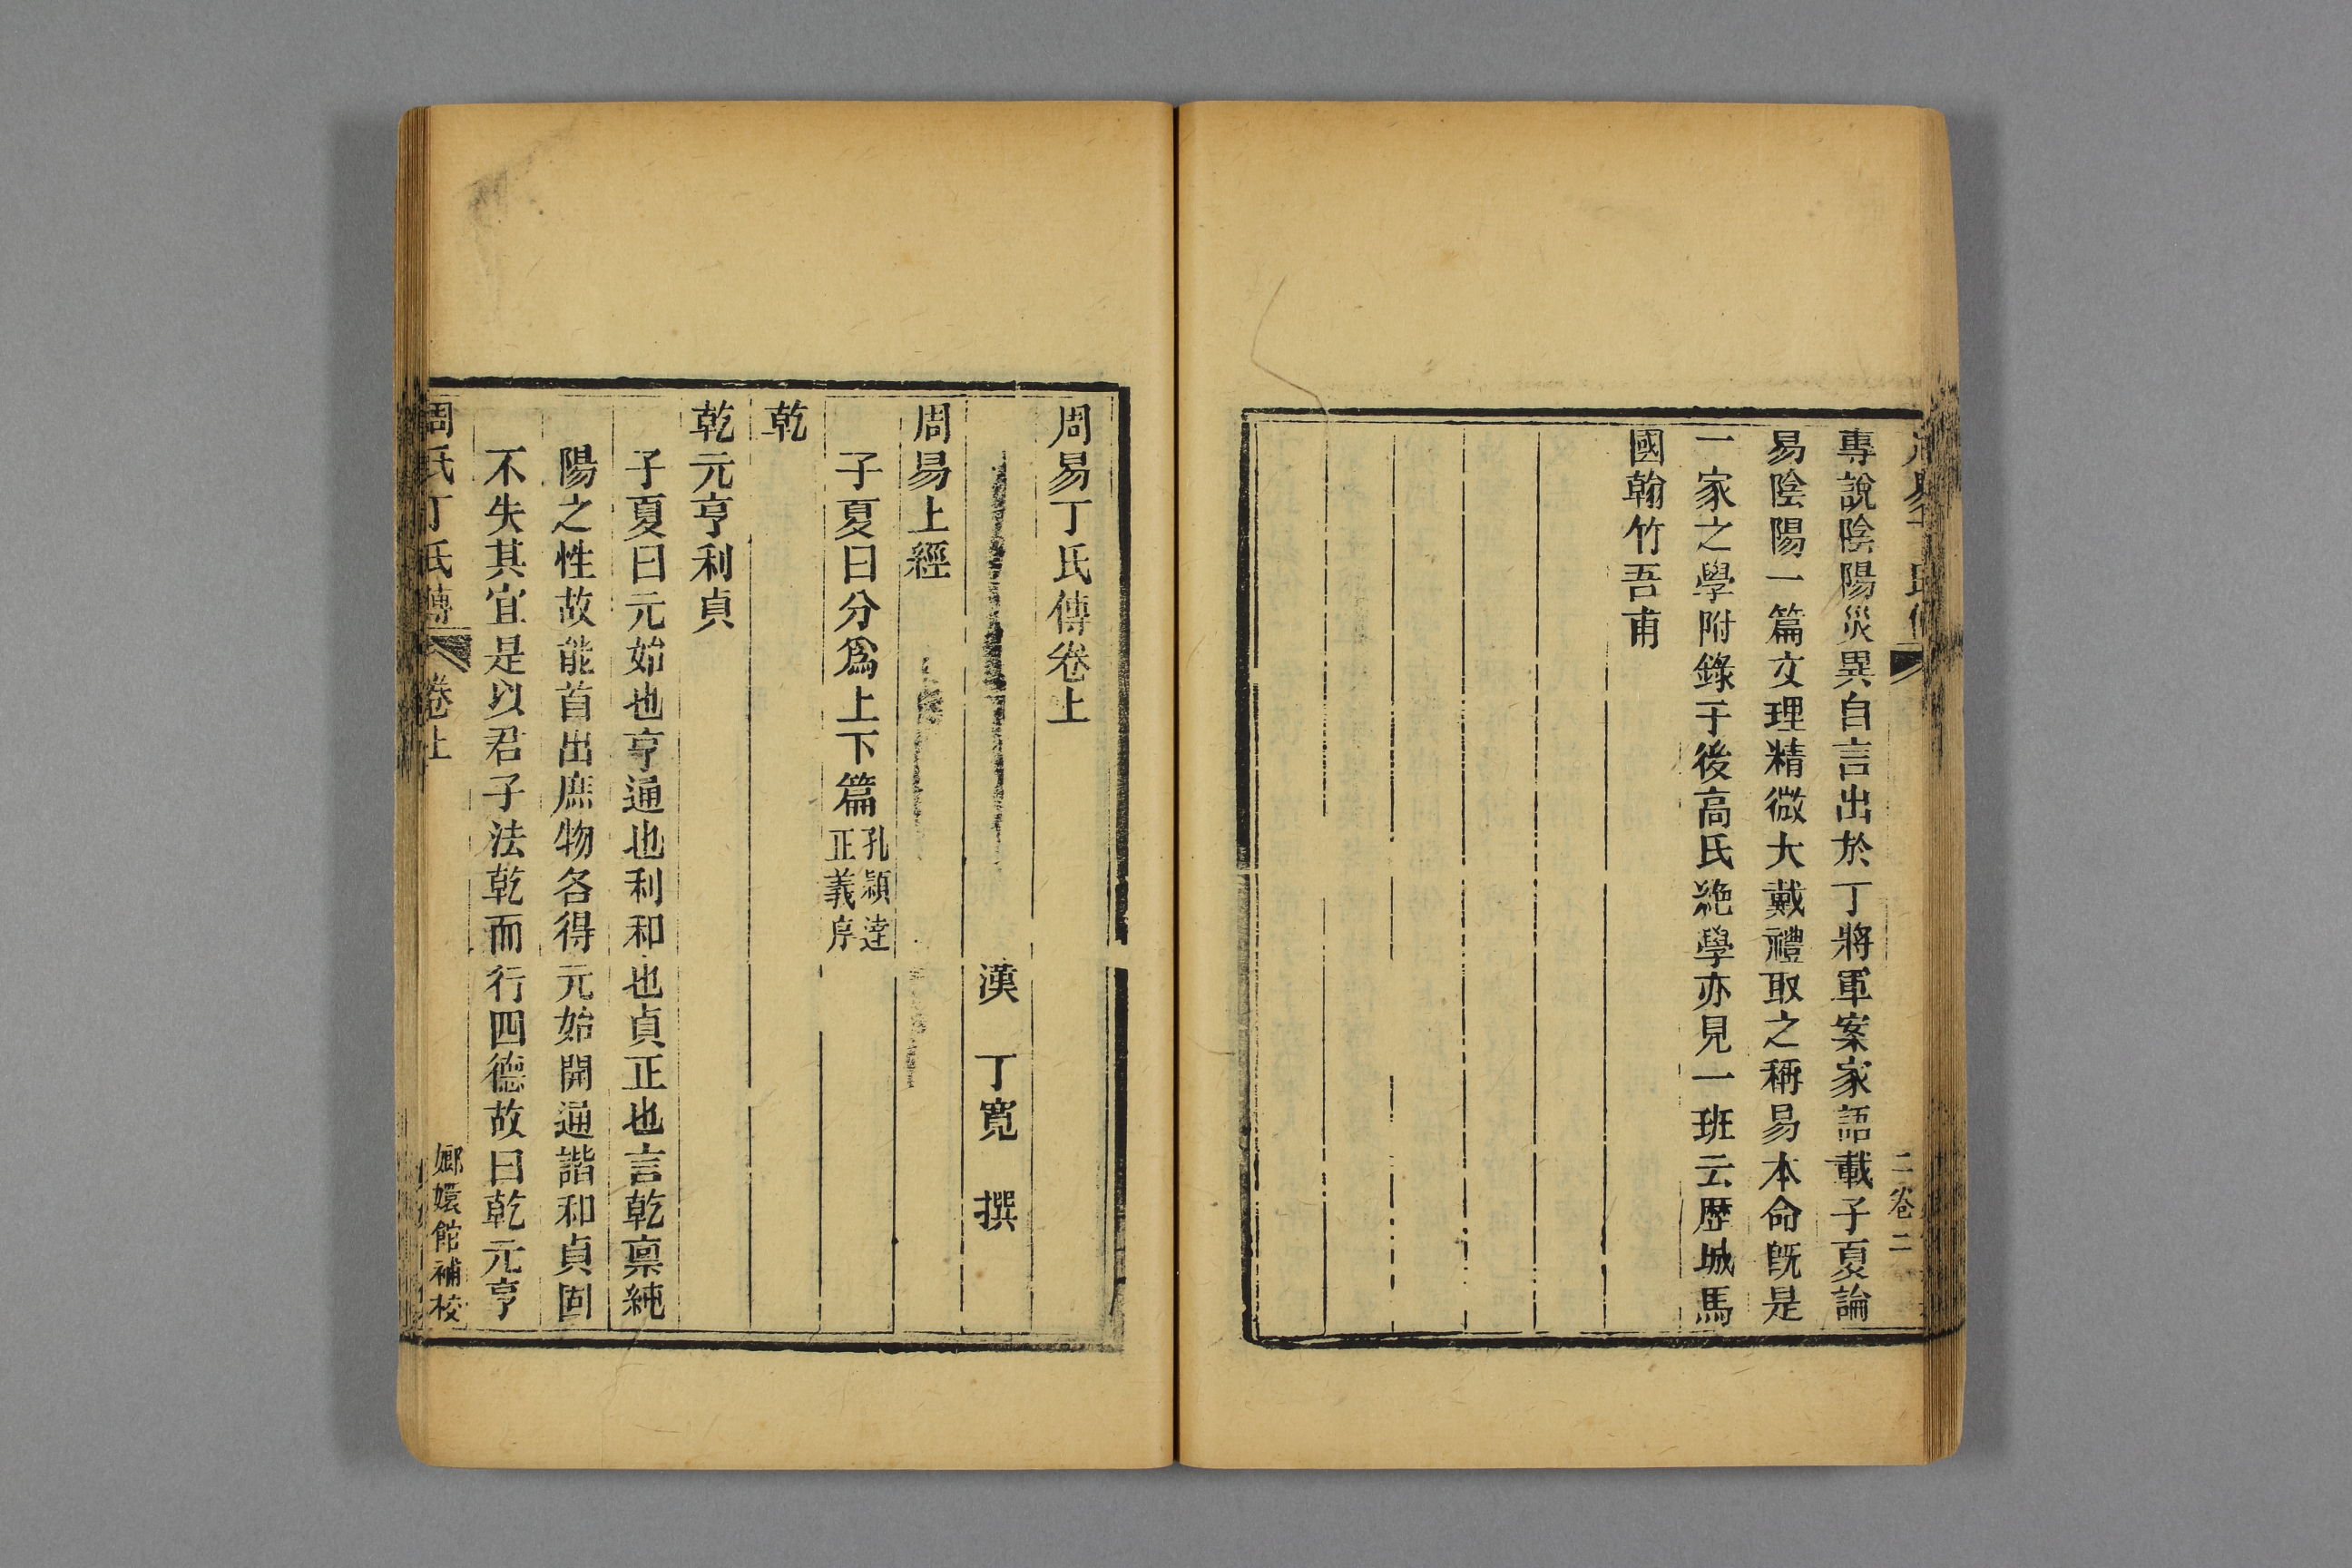 專說陰陽災異自言出於丁將軍案家語載子夏論
易陰陽一篇文理精微大戴禮取之稱易本命旣是
一家之學附錄于後高氏絶學亦見一班云歴城馬
國翰竹吾甫
周易丁氏傳卷上
漢　丁寬　撰
周易上經
子夏曰分爲上下篇孔穎達正義序
乾
乾元亨利貞
子夏曰元始也亨通也利和也貞正也言乾禀純
陽之性故能首出庶物各得元始開通諧和貞固
不失其宜是以君子法乾而行四德故曰乾元亨
周氏丁氏傳　卷上　嫏嬛館補校